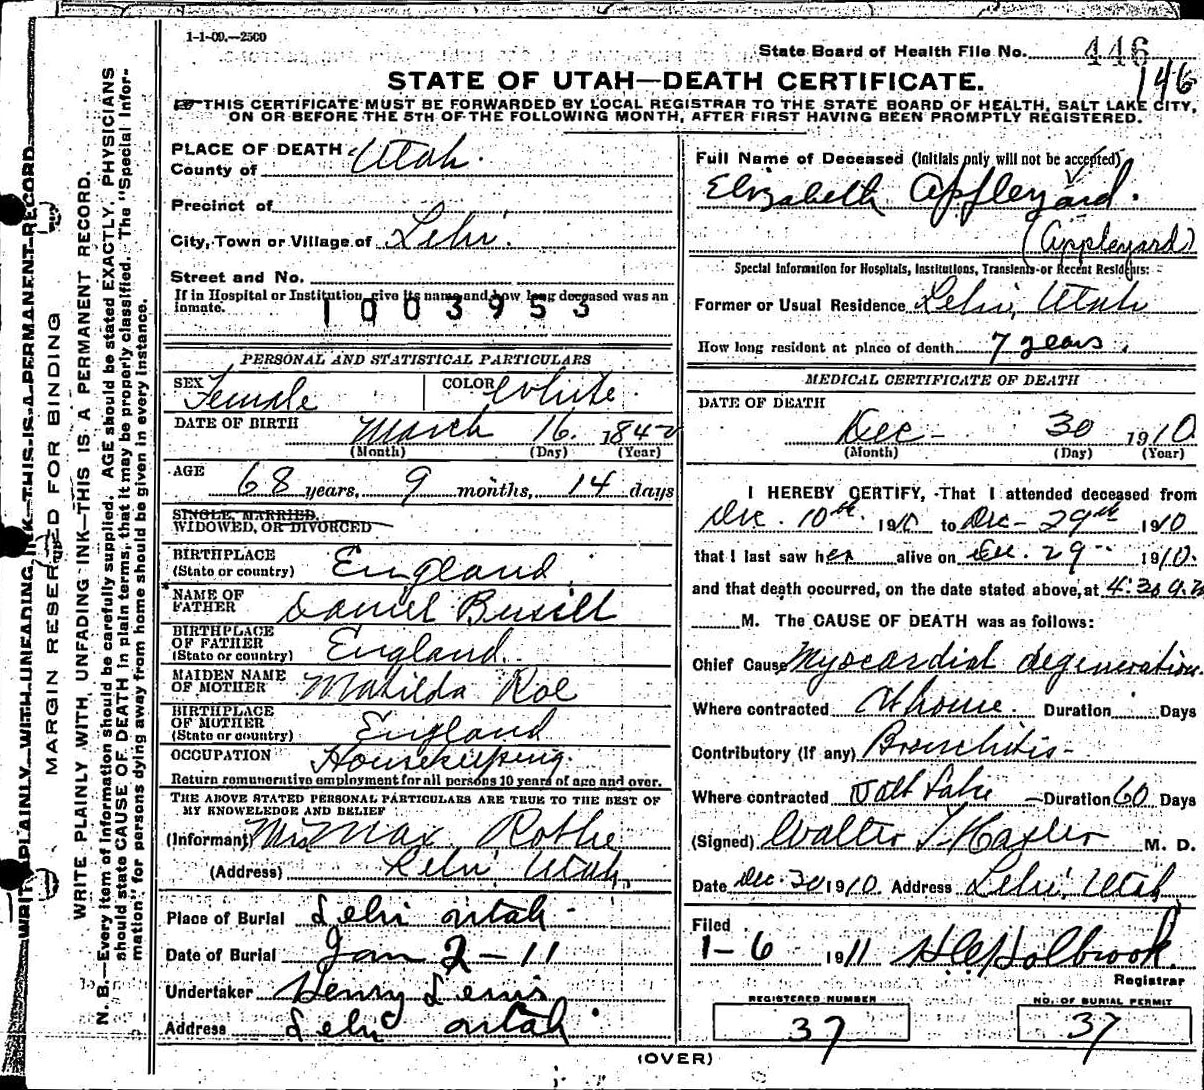 1-1-09.—2500
State Board of Health File No. 446
146
STATE OF UTAH—DEATH CERTIFICATE.
THIS CERTIFICATE MUST BE FORWARDED BY LOCAL REGISTRAR TO THE STATE BOARD OF HEALTH, SALT LAKE CITY,
ON OR BEFORE THE 5TH OF THE FOLLOWING MONTH, AFTER FIRST HAVING BEEN PROMPTLY REGISTERED.
WRITE PLAINLY WITH UNFADING INK—THIS IS A PERMANENT RECORD.
MARGIN RESERVED FOR BINDING
WRITE PLAINLY WITH UNFADING INK—THIS IS A PERMANENT RECORD.
N. B.—Every item of information should be carefully supplied. AGE should be stated EXACTLY. PHYSICIANS
should state CAUSE OF DEATH in plain terms, that it may be properly classified. The "Special Infor-
mation" for persons dying away from home should be given in every instance.
PLACE OF DEATH
County of Utah.
Precinct of
City, Town or Village of Lehi.
Street and No.
If in Hospital or Institution, give its name and how long deceased was an
inmate.
1003953
PERSONAL AND STATISTICAL PARTICULARS
SEX Female COLOR White.
DATE OF BIRTH March 16. 1842
(Month) (Day) (Year)
AGE 68 years, 9 months, 14 days
SINGLE, MARRIED,
WIDOWED, OR DIVORCED
BIRTHPLACE
(State or country) England.
NAME OF
FATHER Daniel
BIRTHPLACE
OF FATHER
(State or country) England.
MAIDEN NAME
OF MOTHER Matilda Roe
BIRTHPLACE
OF MOTHER
(State or country) England
OCCUPATION Housekeeping.
Return remunerative employment for all persons 10 years of age and over.
THE ABOVE STATED PERSONAL PARTICULARS ARE TRUE TO THE BEST OF
MY KNOWLEDGE AND BELIEF
(Informant) Mrs Max Rothe
(Address) Lehi, Utah,
Place of Burial Lehi Utah
Date of Burial Jan 2-11
Undertaker Henry Lewis
Address Lehi Utah
Full Name of Deceased (Initials only will not be accepted)
Elizabeth Appleyard.
(Appleyard)
Special Information for Hospitals, Institutions, Transients or Recent Residents:
Former or Usual Residence Lehi, Utah
How long resident at place of death 7 years.
MEDICAL CERTIFICATE OF DEATH
DATE OF DEATH
Dec- 30 1910.
(Month) (Day) (Year)
I HEREBY CERTIFY, That I attended deceased from
Dec. 10th. 1910 to Dec- 29th 1910
that I last saw her alive on Dec. 29 1910.
and that death occurred, on the date stated above, at 4:30 a.m.
M. The CAUSE OF DEATH was as follows:
Chief Cause Myocardial degeneration.
Where contracted At home. Duration Days
Contributory (If any) Bronchitis-
Where contracted Salt Lake Duration 60 Days
(Signed) Walter T. Hasler M. D.
Date Dec. 30 1910. Address Lehi, Utah
Filed
1-6 1911 H C Holbrook.
Registrar
REGISTERED NUMBER
37
NO. OF BURIAL PERMIT
37
(OVER)